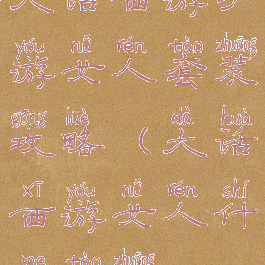 人话西游少
yóu nǚ rén tào zhuāng
游女人套装
gōng lüè dà huà
攻略(大话
xī yóu nǚ rén shí
西游女人什
me tào zhuāng